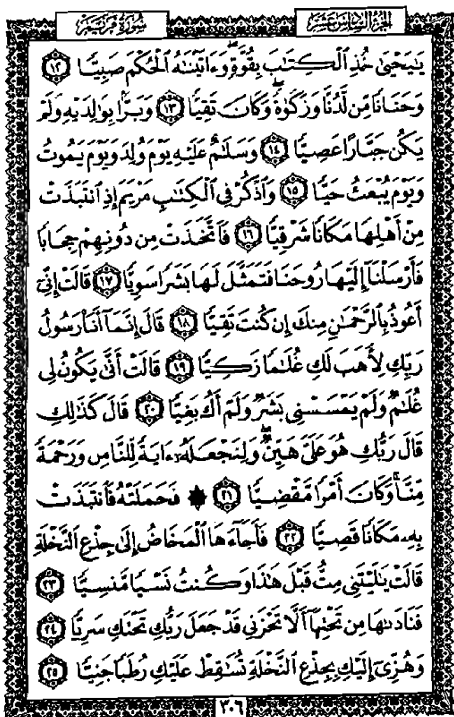 سُورَةُ مَرْيَمَ
الجُزْءُ السَّادِسَ عَشَرَ
يَٰيَحْيَىٰ خُذِ ٱلْكِتَٰبَ بِقُوَّةٍۖ وَءَاتَيْنَٰهُ ٱلْحُكْمَ صَبِيًّا ١٢
وَحَنَانًا مِّن لَّدُنَّا وَزَكَوٰةًۖ وَكَانَ تَقِيًّا ١٣ وَبَرًّۢا بِوَٰلِدَيْهِ وَلَمْ
يَكُن جَبَّارًا عَصِيًّا ١٤ وَسَلَٰمٌ عَلَيْهِ يَوْمَ وُلِدَ وَيَوْمَ يَمُوتُ
وَيَوْمَ يُبْعَثُ حَيًّا ١٥ وَٱذْكُرْ فِى ٱلْكِتَٰبِ مَرْيَمَ إِذِ ٱنتَبَذَتْ
مِنْ أَهْلِهَا مَكَانًا شَرْقِيًّا ١٦ فَٱتَّخَذَتْ مِن دُونِهِمْ حِجَابًا
فَأَرْسَلْنَآ إِلَيْهَا رُوحَنَا فَتَمَثَّلَ لَهَا بَشَرًا سَوِيًّا ١٧ قَالَتْ إِنِّىٓ
أَعُوذُ بِٱلرَّحْمَٰنِ مِنكَ إِن كُنتَ تَقِيًّا ١٨ قَالَ إِنَّمَآ أَنَا۠ رَسُولُ
رَبِّكِ لِأَهَبَ لَكِ غُلَٰمًا زَكِيًّا ١٩ قَالَتْ أَنَّىٰ يَكُونُ لِى
غُلَٰمٌ وَلَمْ يَمْسَسْنِى بَشَرٌ وَلَمْ أَكُ بَغِيًّا ٢٠ قَالَ كَذَٰلِكِ
قَالَ رَبُّكِ هُوَ عَلَىَّ هَيِّنٌۖ وَلِنَجْعَلَهُۥٓ ءَايَةً لِّلنَّاسِ وَرَحْمَةً
مِّنَّاۚ وَكَانَ أَمْرًا مَّقْضِيًّا ٢١ ۞ فَحَمَلَتْهُ فَٱنتَبَذَتْ
بِهِۦ مَكَانًا قَصِيًّا ٢٢ فَأَجَآءَهَا ٱلْمَخَاضُ إِلَىٰ جِذْعِ ٱلنَّخْلَةِ
قَالَتْ يَٰلَيْتَنِى مِتُّ قَبْلَ هَٰذَا وَكُنتُ نَسْيًا مَّنسِيًّا ٢٣
فَنَادَىٰهَا مِن تَحْتِهَآ أَلَّا تَحْزَنِى قَدْ جَعَلَ رَبُّكِ تَحْتَكِ سَرِيًّا ٢٤
وَهُزِّىٓ إِلَيْكِ بِجِذْعِ ٱلنَّخْلَةِ تُسَٰقِطْ عَلَيْكِ رُطَبًا جَنِيًّا ٢٥
٣٠٦